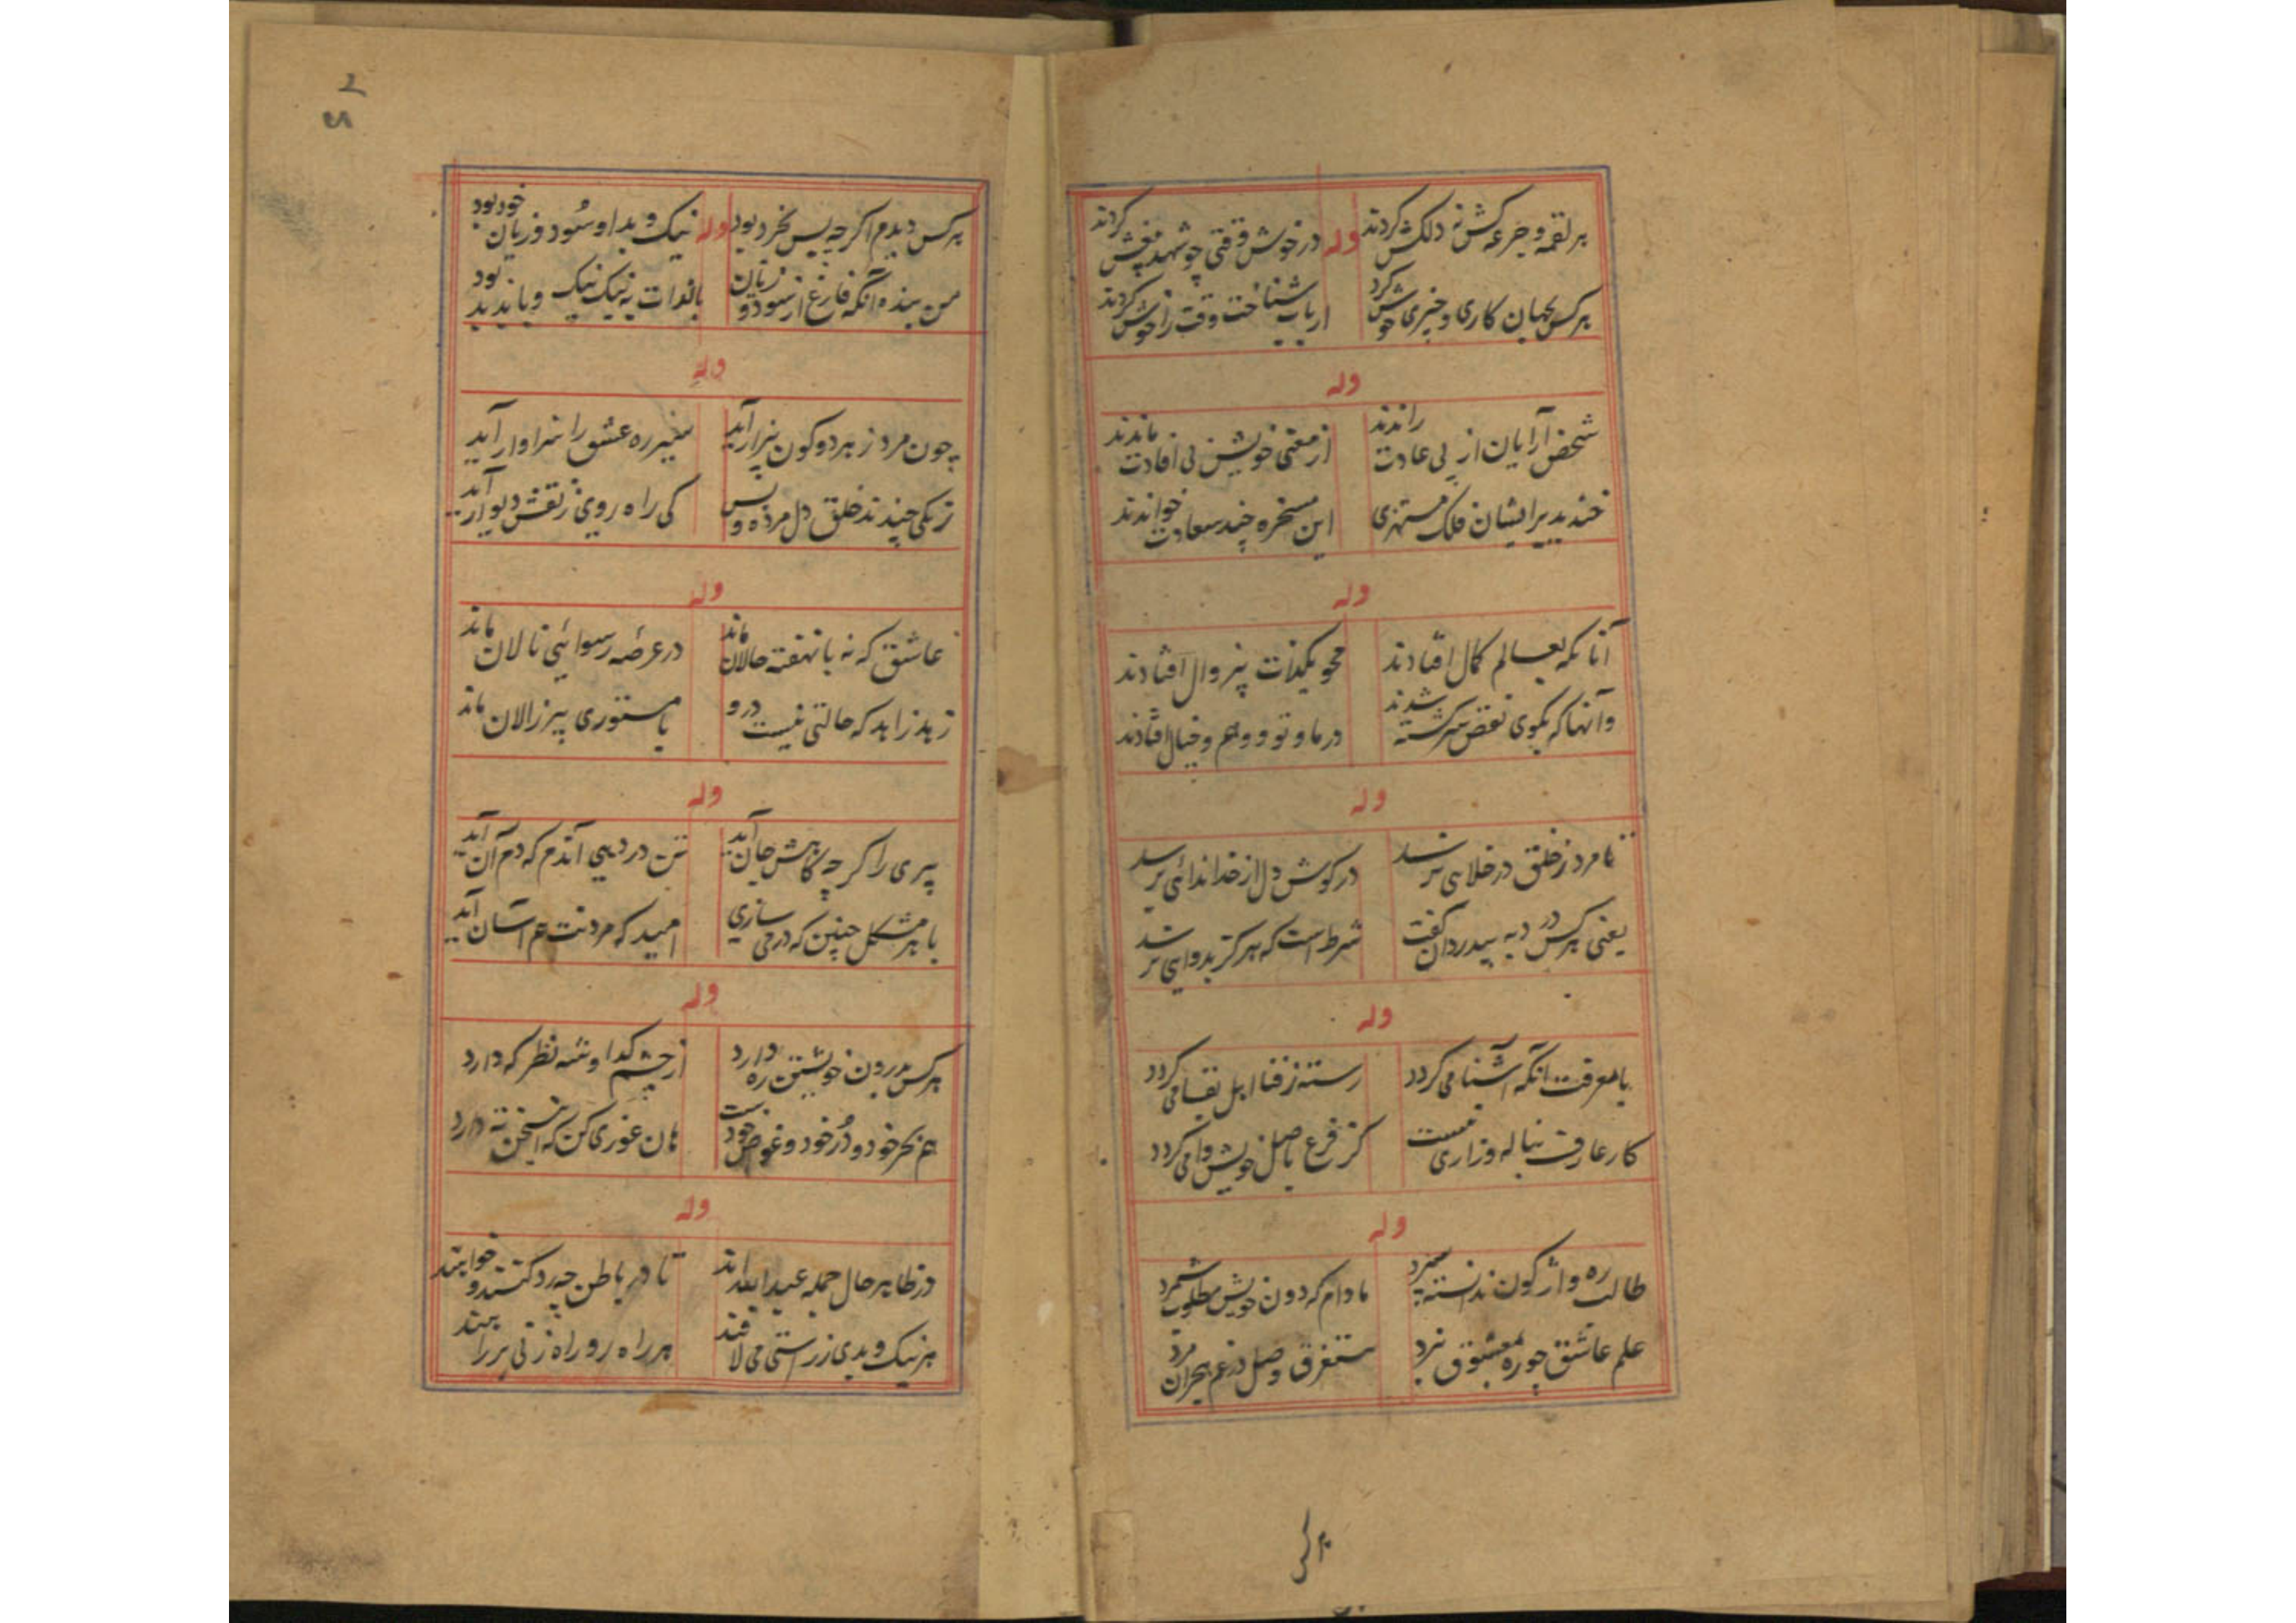 هر لقمه و جرعه کش نه دلکش کردند وله در خوش وقتی چو شهد و بیغش کردند
هر کس بجهان کاری و چیزی خوش کرد ارباب شناخت وقت را خوش کردند
وله
شخص آرایان از پی عادت راندند از معنی خویش بی افادت ماندند
خندید برایشان فلک مستهزی این مسخره چند سعادت خواندند
وله
آنانکه بعالم کمال افتادند محو یکذات بیزوال افتادند
وآنها که بکوی نقص سرگشته شدند در ما و تو و وهم و خیال افتادند
وله
تا مرد ز خلق در خلایی نرسد در کوش دل از خدا ندائی نرسد
یعنی هر کس درد به بیدردان گفت شرط است که هرکز بدوایی نرسد
وله
بامعرفت آنکه آشنا می کردد رسته ز فنا اهل بقا می کردد
کار عارف بناله و زاری نیست کز فرع باصل خویش وا می کردد
وله
طالب ره واژگون ندانسته سپرد مادام که دون خویش مطلوب شمرد
علم عاشق چو ره بمعشوق نبرد مستغرق وصل در غم هجران مرد
هر کس
هر کس دیدم اکر چه بس بخرد بود وله نیک و بد او سود و زیان خود بود
من بنده آنکه فارغ از سود و زیان با ذات به نیک نیک و با بد بد بود
وله
چون مرد ز هر دو کون بیزار آید سیر ره عشق را سزاوار آید
زنکی چندند خلق دل مرده و بس کی راه روی ز نقش دیوار آید
وله
عاشق که نه با نهفته حالان ماند در عرصهٔ رسوائیی نالان ماند
زهد زاهد که حالتی نیست درو با مستوری پیر زالان ماند
وله
پیری را کر چه کاهش جان آید تن در دهی آندم که دم آن آید
با هر مشکل چنین که در می سازی امید که مردنت هم آسان آید
وله
هر کس بدرون خویشتن ره دارد از چشم کدا و شه نظر که دارد
هم بحر خود و در خود و غواص خودست هان غوری کن که این سخن ته دارد
وله
در ظاهر حال جمله عبد اللّه اند تا در باطن چه رد کنند و خواهند
هر نیک و بدی ز راستی می لافند هر راه رو راه زنی بر راهند